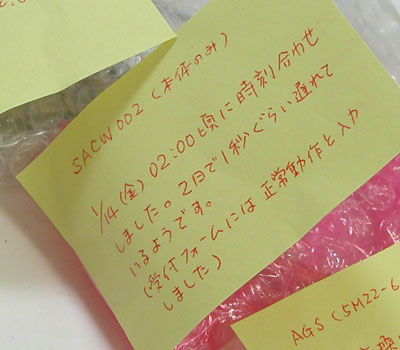 SACW002(本体のみ)
1/14(金) 02:00頃に時刻合わせ
しました。2日で1秒ぐらい遅れて
いるようです。
(受付フォームには正常動作と入力
しました)
AGS(5M22-6